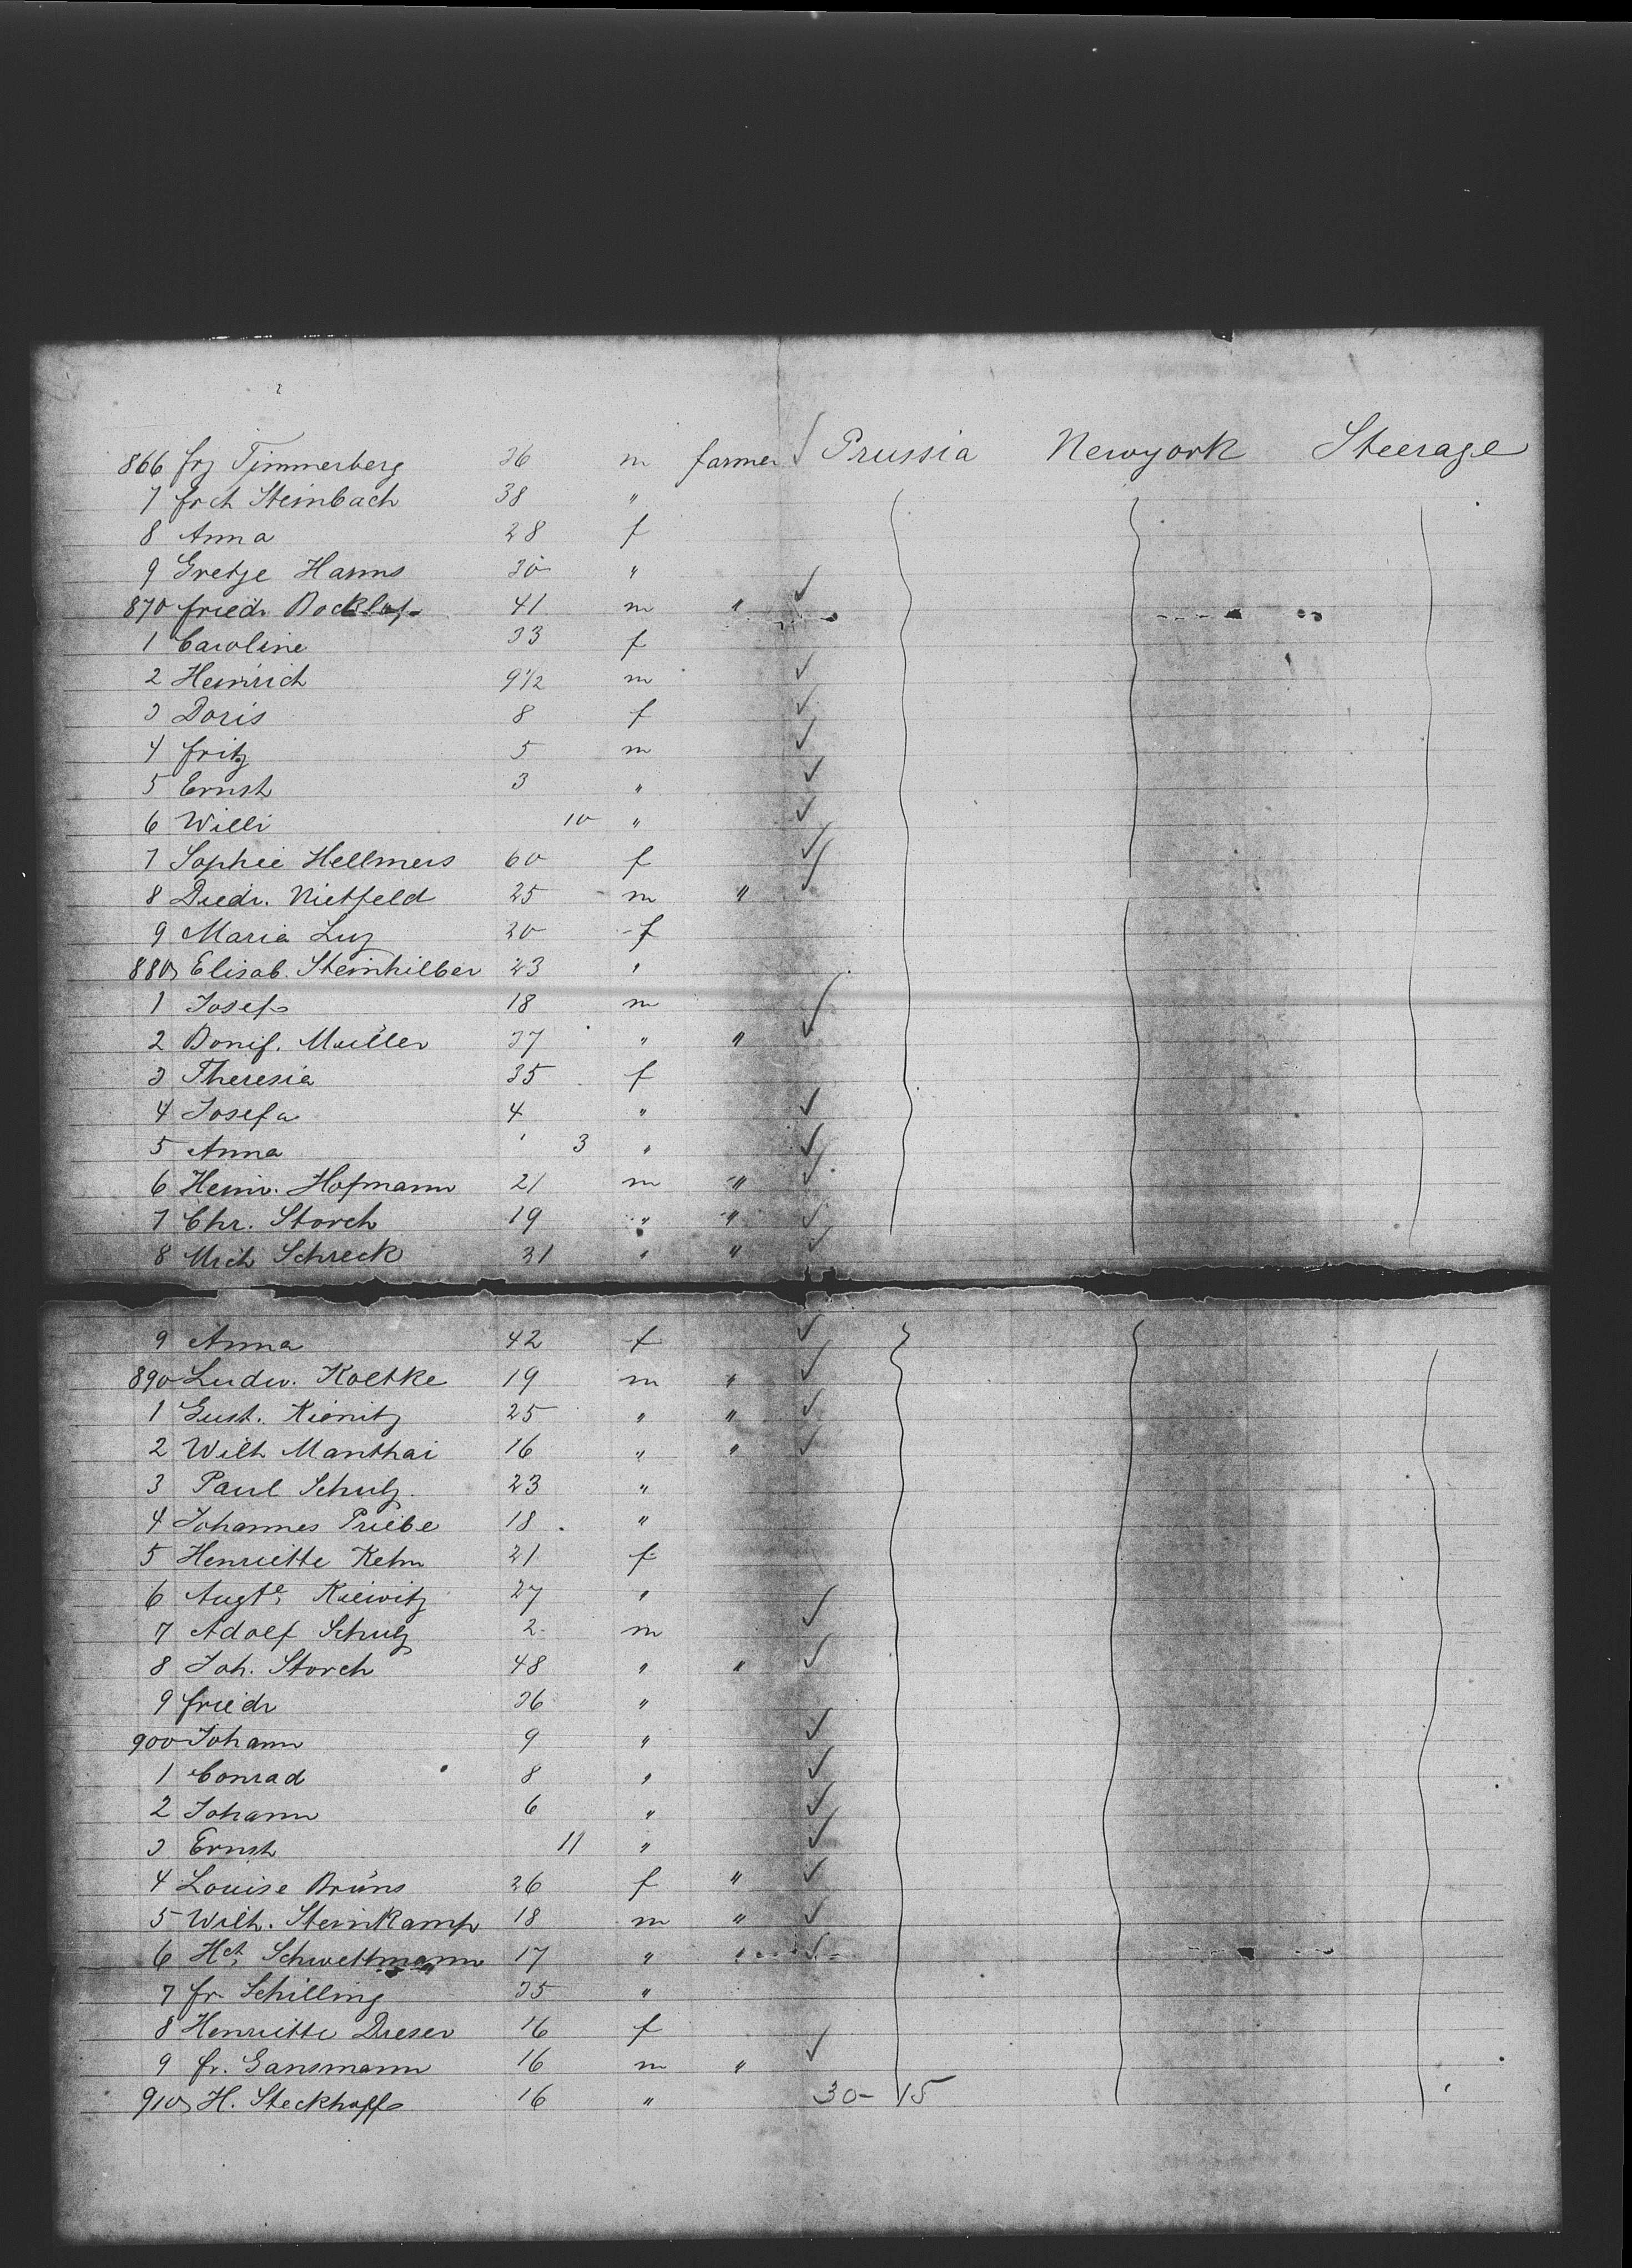 866 frz Timmerberg 36 m farmer √ Prussia Newyork Steerage
7 frch Steinbach 38 "
8 Anna 28 f
9 Gretje Harms 30 "
870 friedr. 41 m " ✓
1 Caroline 33 f
2 Heinrich 9 1/2 m ✓
3 Doris 8 f ✓
4 fritz 5 m ✓
5 Ernst 3 " ✓
6 Willi 10 " ✓
7 Sophie Hellmers 60 f ✓
8 Diedr. Nietfeld 25 m " ✓
9 Maria Luz 20 f
880 Elisab. Steinhilber 23 "
1 Josef 18 m
2 Bonif. Müller 37 " " ✓
3 Theresia 35 f
4 Josefa 4 " ✓
5 Anna 3 " ✓
6 Heinr. Hofmann 21 m " ✓
7 Chr. Storch 19 " " ✓
8 Mich Schreck 31 " " ✓
9 Anna 42 f ✓
890 Ludw. Koltke 19 m " ✓
1 Gust. Kienitz 25 " " ✓
2 Wilh Manthai 16 " " ✓
3 Paul Schulz. 23 "
4 Johannes Priebe 18 "
5 Henriette Kehn 21 f
6 Augte. 27 "
7 Adolf Schulz 2 m ✓
8 Joh. Storch 48 " " ✓
9 friedr 36 "
900 Johann 9 " ✓
1 Conrad 8 " ✓
2 Johann 6 " ✓
3 Ernst 11 " ✓
4 Louise Brüns 26 f " ✓
5 Wilh. Steinkamp 18 m " ✓
6 Hch. Schwettmann 17 " " ✓
7 fr. Schilling 35 "
8 Henriette Dreser 16 f
9 fr. Gansmann 16 m " ✓
910 H. Steckhoff 16 " 30- 15